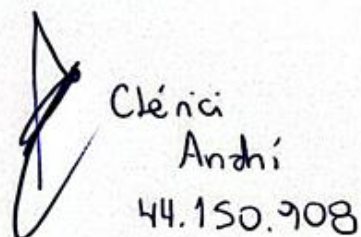 Clérici
Andrí
44.150.908